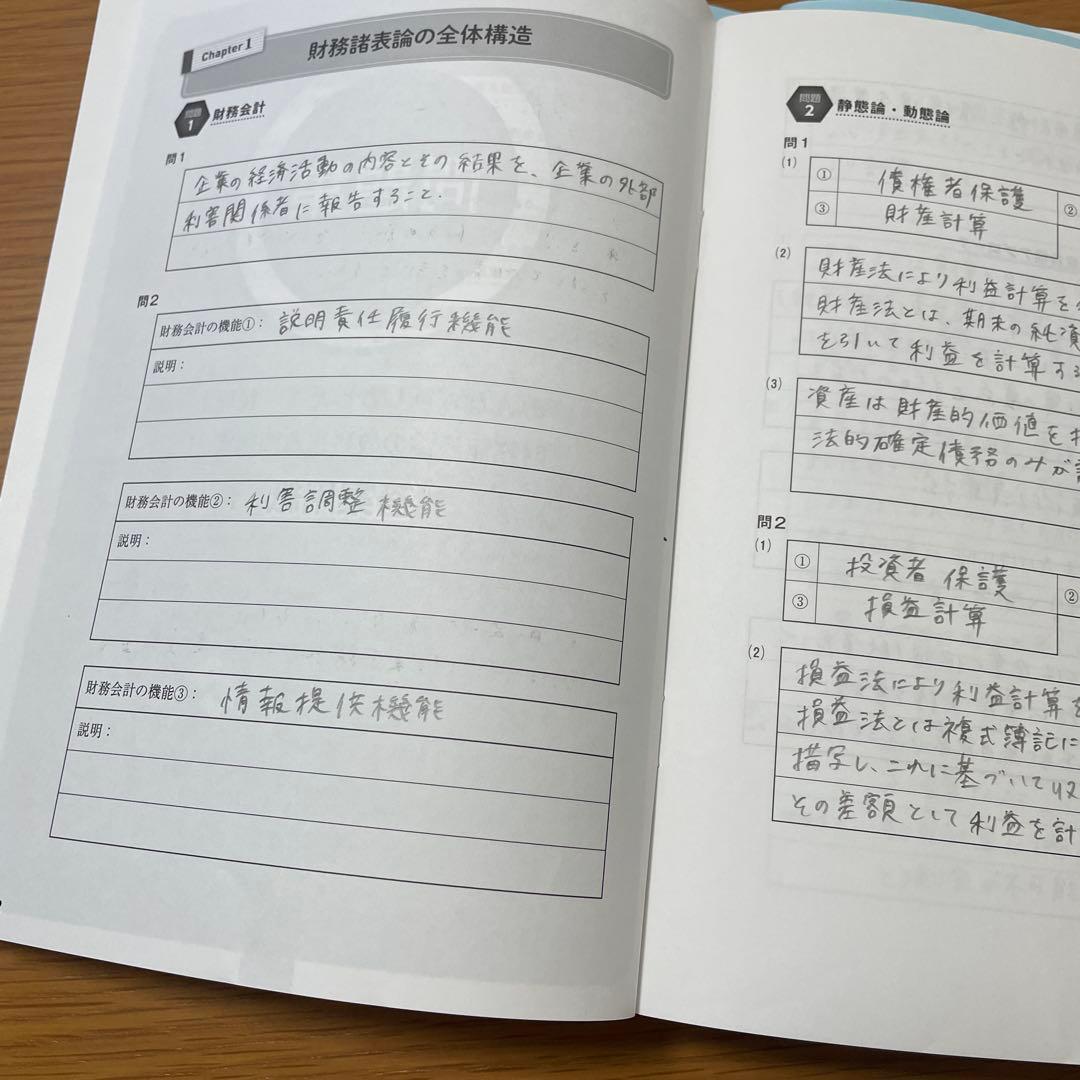 Chapter 1
財務諸表論の全体構造
問題
1
財務会計
問1
企業の経済活動の内容とその結果を、企業の外部
利害関係者に報告すること.
問2
財務会計の機能①: 説明責任履行機能
説明:
財務会計の機能②: 利害調整機能
説明:
財務会計の機能③: 情報提供機能
説明:
問題
2
静態論・動態論
問1
(1)
① 債権者保護 ②
③ 財産計算
(2)
財産法により利益計算を
財産法とは、期末の純資
を引いて利益を計算す
(3)
資産は財産的価値を
法的確定債務のみが
問2
(1)
① 投資者保護 ②
③ 損益計算
(2)
損益法により利益計算を
損益法とは複式簿記に
描写し、これに基づいて収
その差額として利益を計